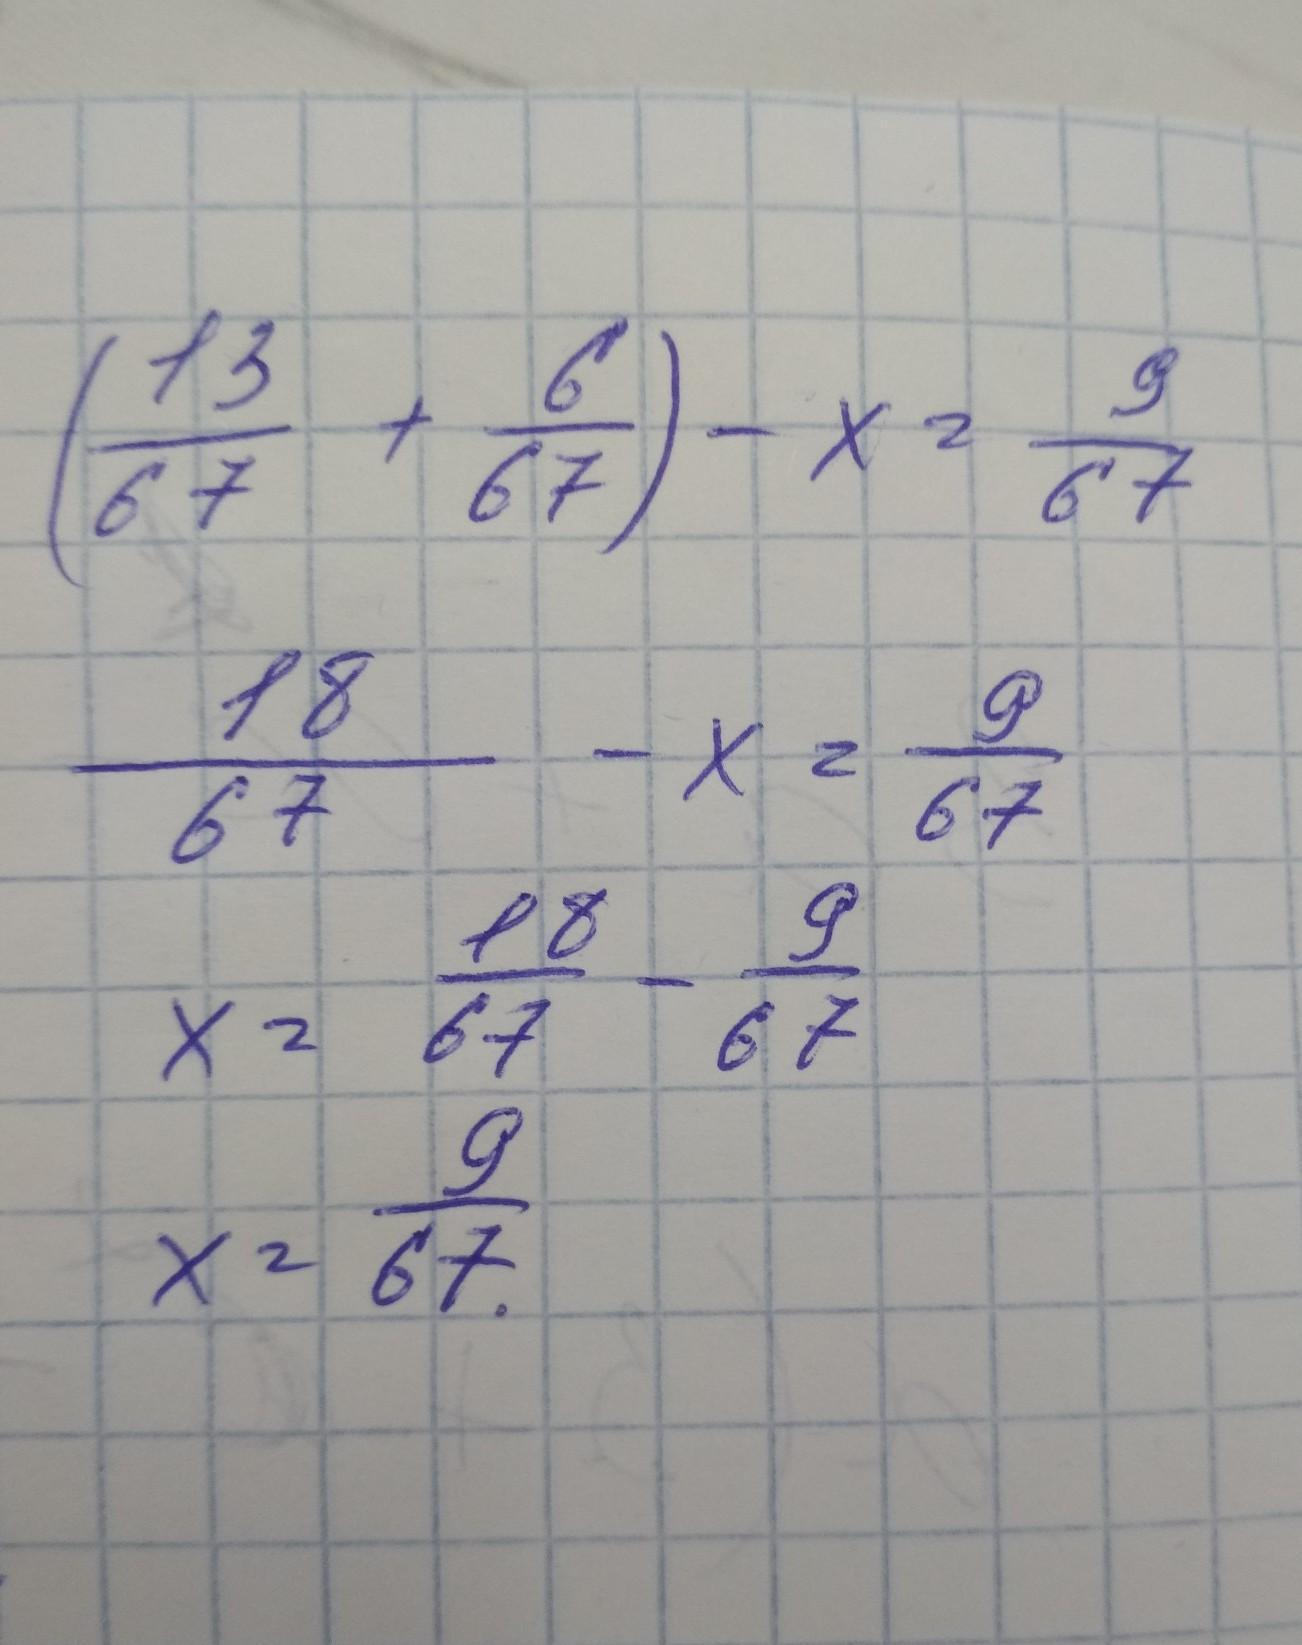 (13/67 + 6/67) - x = 9/67
18/67 - x = 9/67
x = 18/67 - 9/67
x = 9/67.